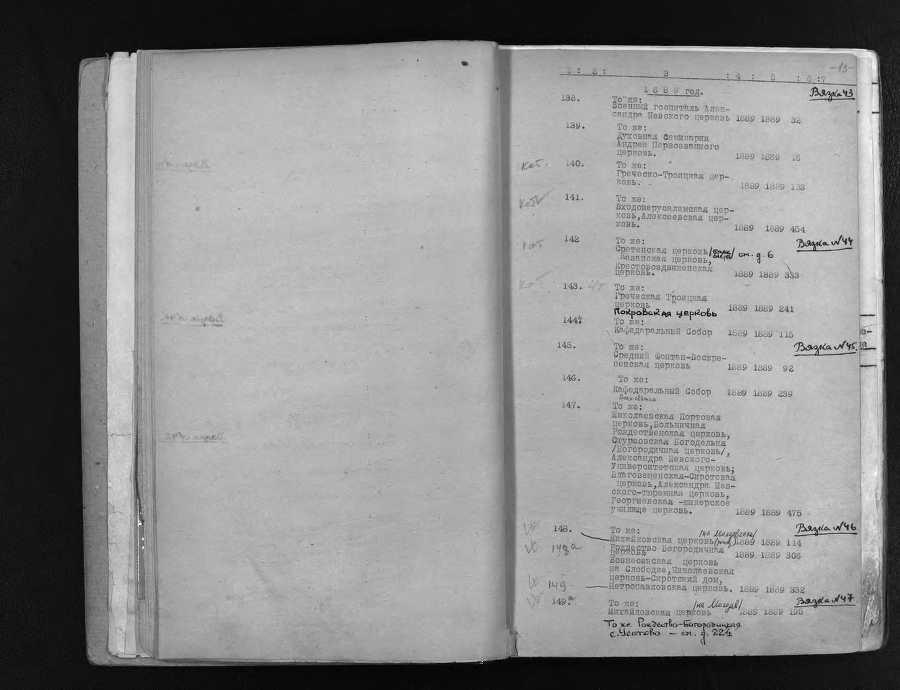 -13-
1 : 2 : 3 : 4 : 5 : 6 : 7
1889 год.
Вязка 43
138. То же:
Военный госпиталь Алек-
сандра Невского церковь 1889 1889 32
139. То же:
Духовная семинария
Андрея Первозванного
церковь. 1889 1889 16
140. То же:
Греческо-Троицкая цер-
ковь. 1889 1889 133
141. То же:
Входоиерусалимская цер-
ковь,Алексеевская цер-
ковь. 1889 1889 454
Вязка №44
142 То же:
Сретенская церковь, см. д. 6
Казанская церковь,
Крестовоздвиженская
церковь. 1889 1889 333
143. То же:
Греческая Троицкая
церковь 1889 1889 241
Покровская церковь
144. То же:
Кафедаральный Собор 1889 1889 115
Вязка №45
145. То же:
Средний Фонтан-Воскре-
сенская церковь 1889 1889 92
146. То же:
Кафедаральный Собор 1889 1889 239
147. То же:
Николаевская Портовая
церковь,Больничная
Рождественская церковь,
Стурзовская Богодельня
/Богородичная церковь/,
Александра Невского-
Университетская церковь;
Благовещенская-Сиротская
церковь,Александра Нев-
ского-тюремная церковь,
Георгиевская -юнкерское
училище церковь. 1889 1889 475
Вязка №46
148. То же:
Михайловская церковь 1889 1889 114
148а Рождество Богородичная
церковь 1889 1889 306
Вознесенская церковь
на Слободке,Николаевская
церковь-Сиротский дом,
149 Петропавловская церковь. 1889 1889 332
Вязка №47
149а То же:
Михайловская церковь 1889 1889 195
То же Рождество-Богородицкая
с. Усатово – см. д. 224